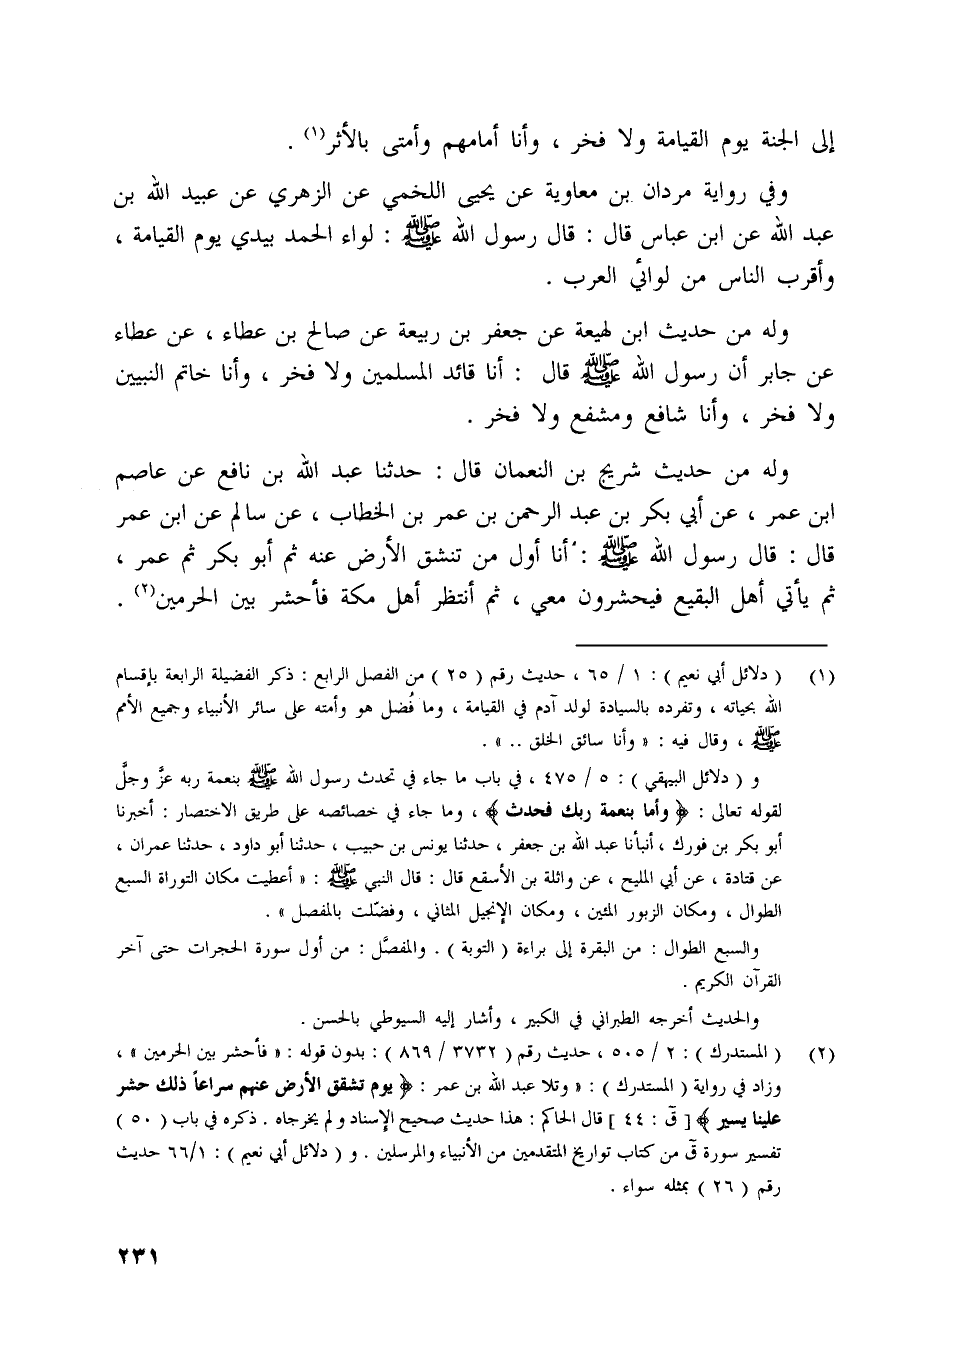 إلى الجنة يوم القيامة ولا فخر ، وأنا أمامهم وأمتى بالأثر(١) .
وفي رواية مردان بن معاوية عن يحيى اللخمي عن الزهري عن عبيد الله بن
عبد الله عن ابن عباس قال : قال رسول الله ﷺ : لواء الحمد بيدي يوم القيامة ،
وأقرب الناس من لوائي العرب .
وله من حديث ابن لهيعة عن جعفر بن ربيعة عن صالح بن عطاء ، عن عطاء
عن جابر أن رسول الله ﷺ قال : أنا قائد المسلمين ولا فخر ، وأنا خاتم النبيين
ولا فخر ، وأنا شافع ومشفع ولا فخر .
وله من حديث شريج بن النعمان قال : حدثنا عبد الله بن نافع عن عاصم
ابن عمر ، عن أبي بكر بن عبد الرحمن بن عمر بن الخطاب ، عن سالم عن ابن عمر
قال : قال رسول الله ﷺ : أنا أول من تنشق الأرض عنه ثم أبو بكر ثم عمر ،
ثم يأتي أهل البقيع فيحشرون معي ، ثم أنتظر أهل مكة فأحشر بين الحرمين(٢) .
(١) ( دلائل أبي نعيم ) : ١ / ٦٥ ، حديث رقم ( ٢٥ ) من الفصل الرابع : ذكر الفضيلة الرابعة بإقسام
الله بحياته ، وتفرده بالسيادة لولد آدم في القيامة ، وما فُضل هو وأمته على سائر الأنبياء وجميع الأمم
ﷺ ، وقال فيه : « وأنا سائق الخلق .. » .
و ( دلائل البيهقي ) : ٥ / ٤٧٥ ، في باب ما جاء في تحدث رسول الله ﷺ بنعمة ربه عزَّ وجلَّ
لقوله تعالى : ﴿ وأما بنعمة ربك فحدث ﴾ ، وما جاء في خصائصه على طريق الاختصار : أخبرنا
أبو بكر بن فورك ، أنبأنا عبد الله بن جعفر ، حدثنا يونس بن حبيب ، حدثنا أبو داود ، حدثنا عمران ،
عن قتادة ، عن أبي المليح ، عن واثلة بن الأسقع قال : قال النبي ﷺ : « أعطيت مكان التوراة السبع
الطوال ، ومكان الزبور المئين ، ومكان الإنجيل المثاني ، وفضّلت بالمفصل » .
والسبع الطوال : من البقرة إلى براءة ( التوبة ) . والمفصَّل : من أول سورة الحجرات حتى آخر
القرآن الكريم .
والحديث أخرجه الطبراني في الكبير ، وأشار إليه السيوطي بالحسن .
(٢) ( المستدرك ) : ٢ / ٥٠٥ ، حديث رقم ( ٣٧٣٢ / ٨٦٩ ) : بدون قوله : « فأحشر بين الحرمين » ،
وزاد في رواية ( المستدرك ) : « وتلا عبد الله بن عمر : ﴿ يوم تشقق الأرض عنهم سراعاً ذلك حشر
علينا يسير ﴾ [ قٓ : ٤٤ ] قال الحاكم : هذا حديث صحيح الإسناد ولم يخرجاه . ذكره في باب ( ٥٠ )
تفسير سورة قٓ من كتاب تواريخ المتقدمين من الأنبياء والمرسلين . و ( دلائل أبي نعيم ) : ٦٦/١ حديث
رقم ( ٢٦ ) بمثله سواء .
٢٣١